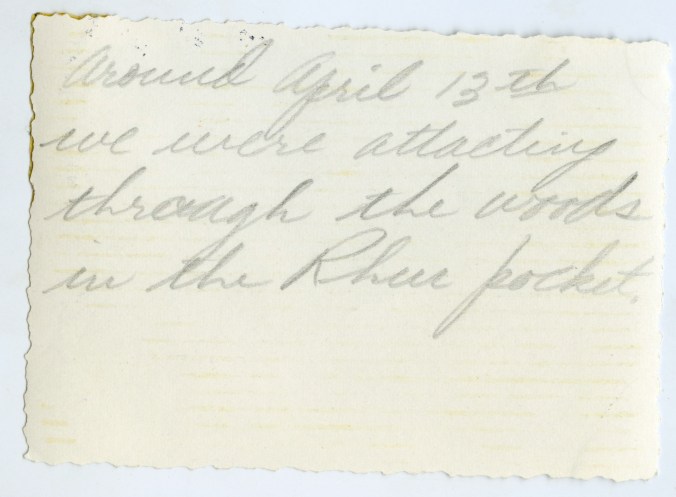 Around April 13th
we were attacting
through the woods
in the Rhur pocket.